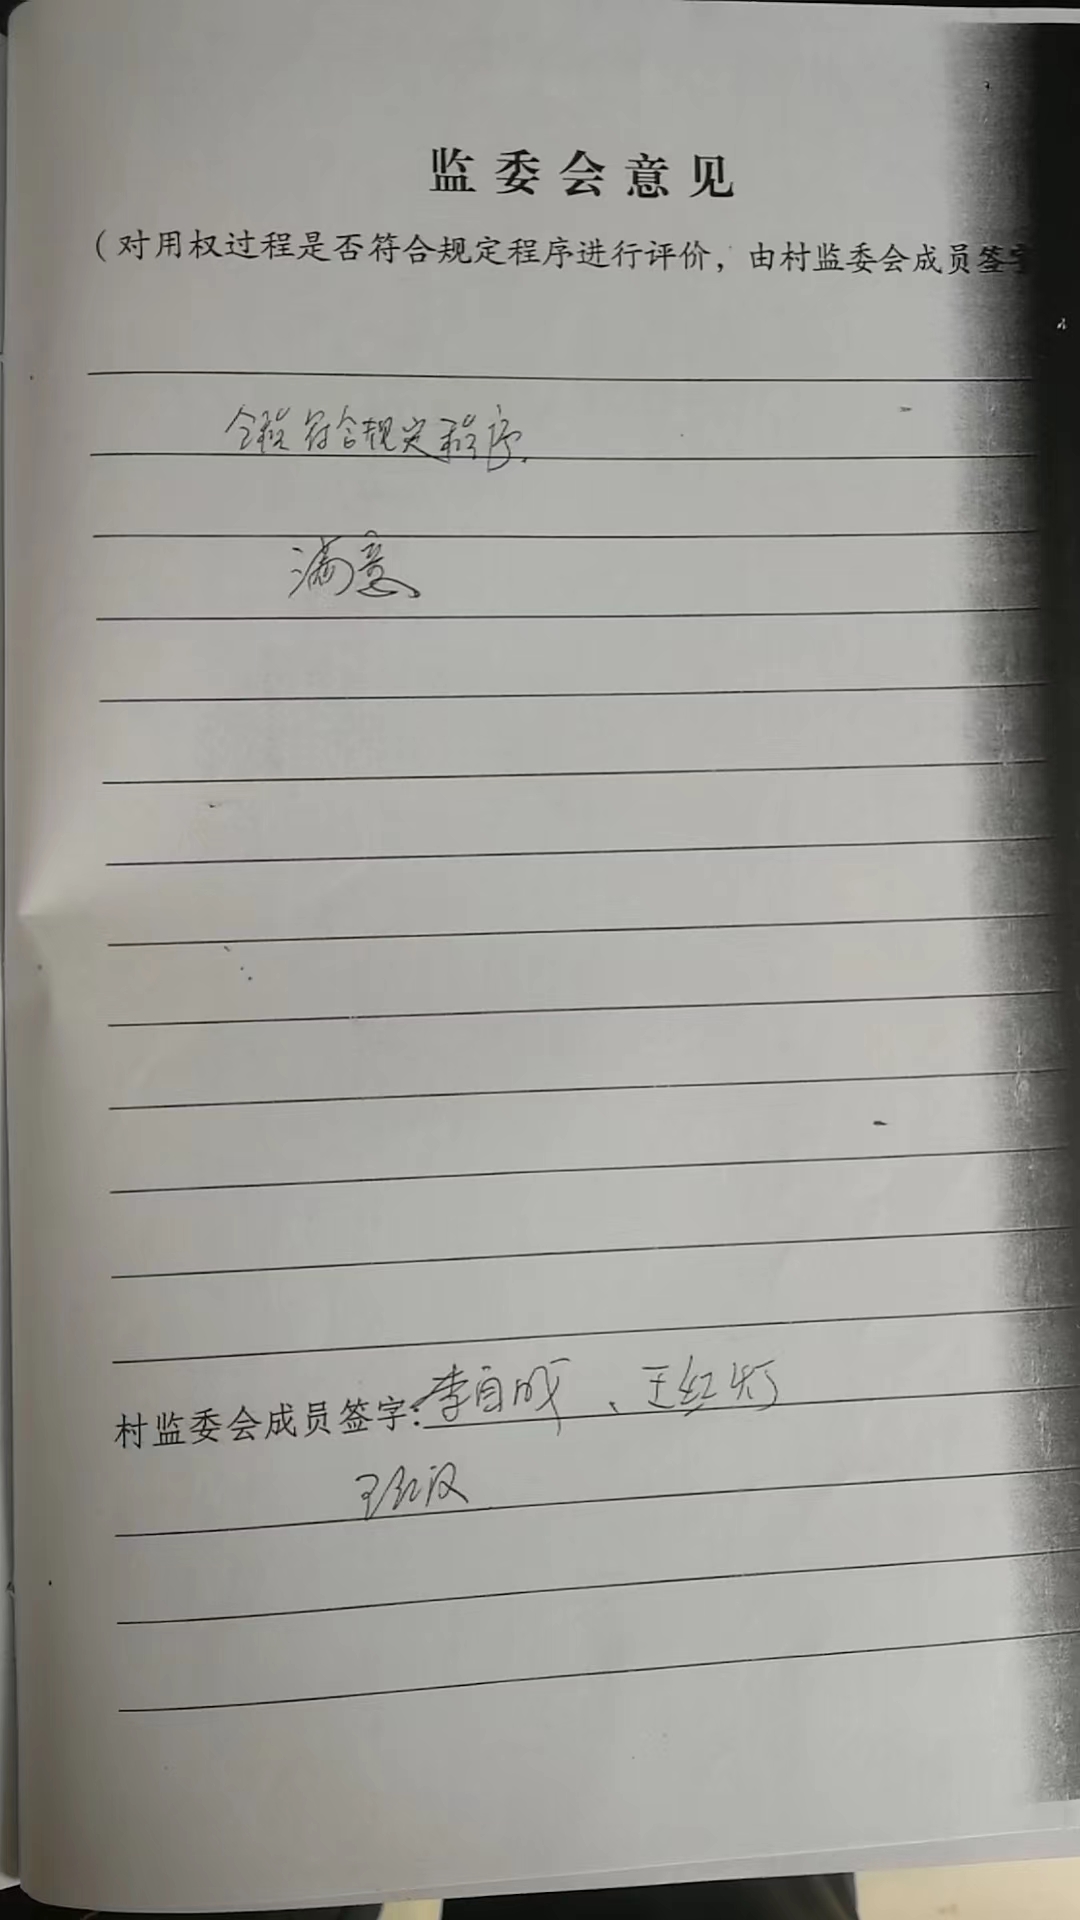 监委会意见
（对用权过程是否符合规定程序进行评价，由村监委会成员签字
全程符合规定程序.
满意
村监委会成员签字:李自成、王红灯
王红汉